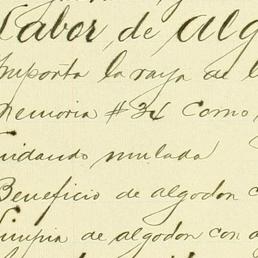 Labor de alg
Importa la raya de l
memoria #34 Como
Cuidando mulada
Beneficio de algodon c
Limpia de algodon con a